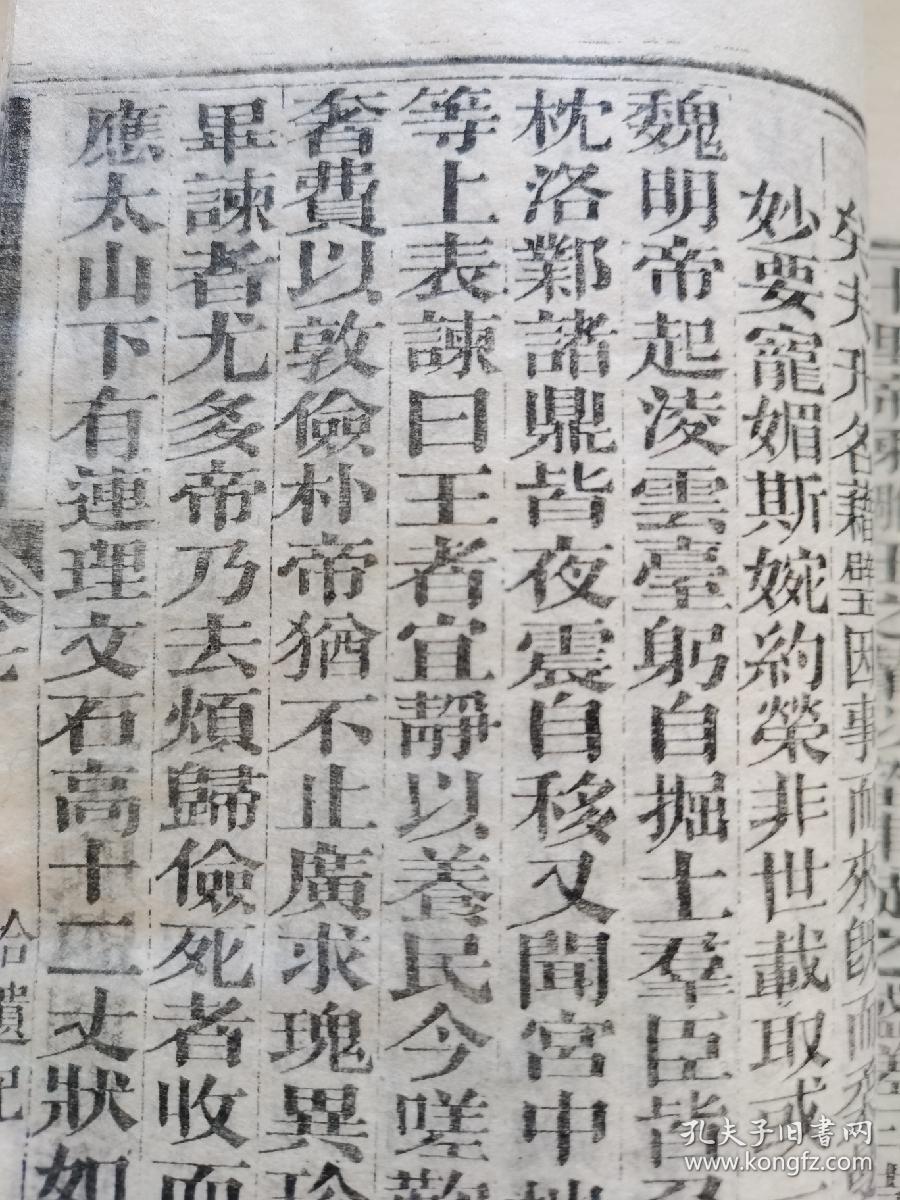 名藉璧因事而來既而
妙要寵媚斯婉約榮非世載取或
魏明帝起淩雲臺躬自掘土羣臣皆
枕洛鄴諸鼎皆夜震自移又聞宮中
等上表諫曰王者宜靜以養民今嗟歎
奢費以敦儉朴帝猶不止廣求瑰異珍
畢諫者尤多帝乃去煩歸儉死者收而
應太山下有連理文石高十二丈狀如
拾遺記
孔夫子旧书网
www.kongfz.com